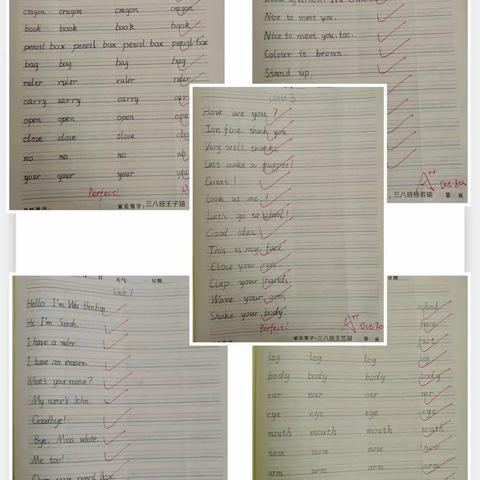 crayon crayon crayon crayon
book book book book
pencil box pencil box pencil box pencil box
bag bag bag bag
ruler ruler ruler ruler
carry carry carry
open open open
close close close
no no no no
your your your
Perfect!
家长签字：三八班王子涵
Nice to meet you.
Nice to meet you, too.
Colour it brown.
Stand up.
三八班杨若瑜
第 页
Unit 3
How are you?
I'm fine, thank you.
Very well, thanks.
Let's make a puppet!
Great!
Look at me!
Let's go to school!
Good idea.
This is my face.
Close your eyes.
Clap your hands.
Wave your arm.
Shake your body.
Perfect!
家长签字：三八班王艺凝
第 页
天气 星期
Unit 1
Hello I'm Wu Binbin.
Hi. I'm Sarah.
I have a ruler.
I have an eraser.
What's your name?
My name's John.
Goodbye!
Bye, Miss white.
Me too!
Open your pencil box
星期
face
leg leg leg leg
body body body body
ear ear ear ear
eye eye eye eye
mouth mouth mouth mouth
nose nose nose nose
arm arm arm arm